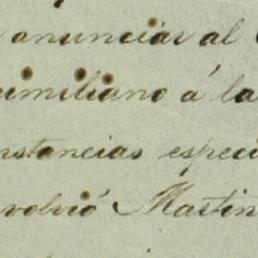 anunciar al
imiliano á la
nstancias especi
volvió Martin